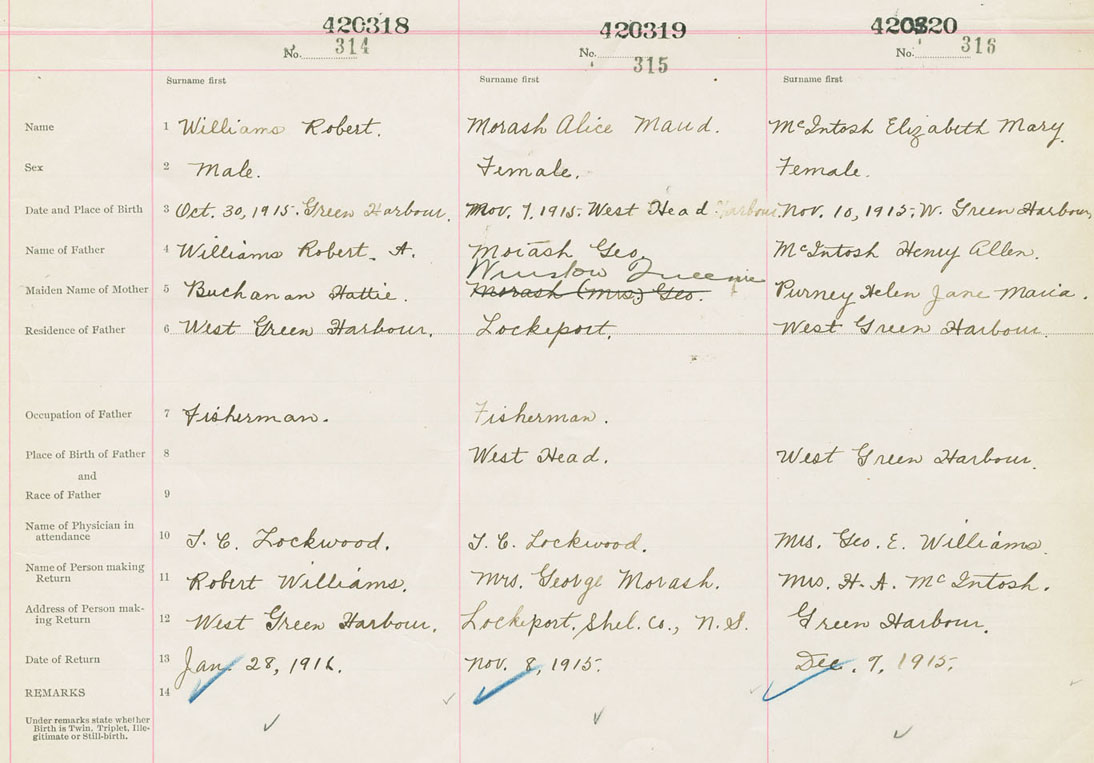 420318 420319 420320
No. 314 No. 315 No. 316
Surname first Surname first Surname first
Name 1 Williams Robert. Morash Alice Maud. McIntosh Elizabeth Mary.
Sex 2 Male. Female. Female.
Date and Place of Birth 3 Oct. 30, 1915. Green Harbour. Nov. 7, 1915. West Head Harbour. Nov. 10, 1915. W. Green Harbour,
Name of Father 4 Williams Robert. A. Morash Geo. McIntosh Henry Allen.
Winslow Queenie
Maiden Name of Mother 5 Buchanan Hattie. Morash (Mrs.) Geo. Purney Helen Jane Maria.
Residence of Father 6 West Green Harbour. Lockeport. West Green Harbour.
Occupation of Father 7 Fisherman. Fisherman.
Place of Birth of Father 8 West Head. West Green Harbour.
and
Race of Father 9
Name of Physician in
attendance 10 T. C. Lockwood. T. C. Lockwood. Mrs. Geo. E. Williams.
Name of Person making
Return 11 Robert Williams. Mrs. George Morash. Mrs. H. A. McIntosh.
Address of Person mak-
ing Return 12 West Green Harbour. Lockeport, Shel. Co., N. S. Green Harbour.
Date of Return 13 Jan. 28, 1916. Nov. 8, 1915. Dec. 7, 1915.
REMARKS 14
Under remarks state whether
Birth is Twin, Triplet, Ille-
gitimate or Still-birth.